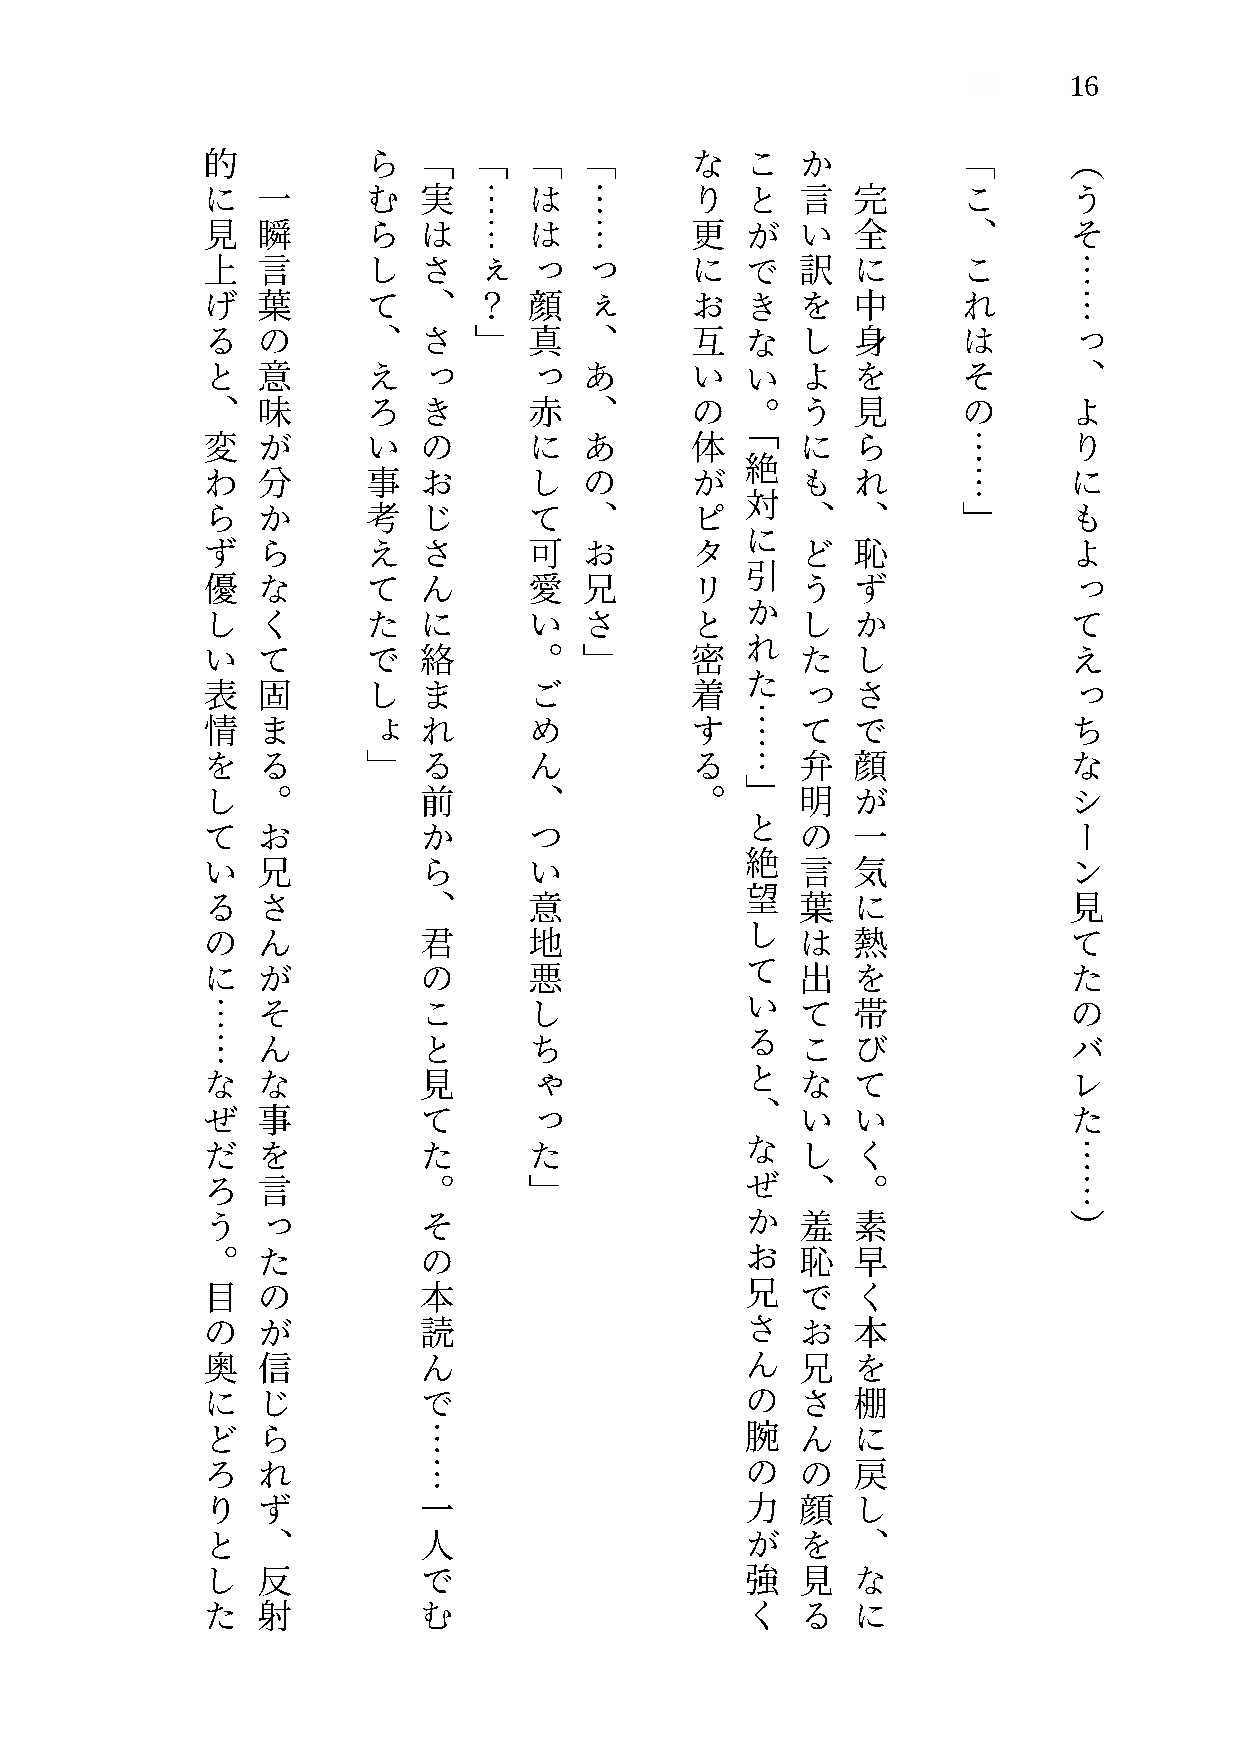 16
（うそ……っ、よりにもよってえっちなシーン見てたのバレた……）
「こ、これはその……」
　完全に中身を見られ、恥ずかしさで顔が一気に熱を帯びていく。素早く本を棚に戻し、なに
か言い訳をしようにも、どうしたって弁明の言葉は出てこないし、羞恥でお兄さんの顔を見る
ことができない。「絶対に引かれた……」と絶望していると、なぜかお兄さんの腕の力が強く
なり更にお互いの体がピタリと密着する。
「……っえ、あ、あの、お兄さ」
「ははっ顔真っ赤にして可愛い。ごめん、つい意地悪しちゃった」
「……ぇ？」
「実はさ、さっきのおじさんに絡まれる前から、君のこと見てた。その本読んで……一人でむ
らむらして、えろい事考えてたでしょ」
　一瞬言葉の意味が分からなくて固まる。お兄さんがそんな事を言ったのが信じられず、反射
的に見上げると、変わらず優しい表情をしているのに……なぜだろう。目の奥にどろりとした